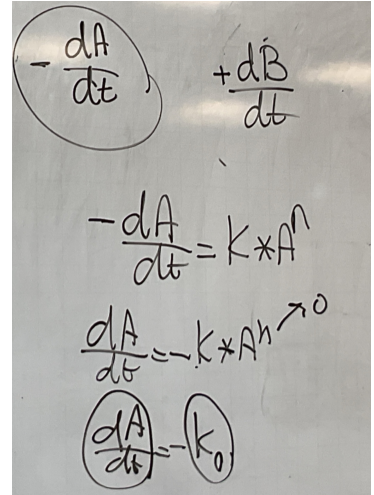 - dA/dt +dB/dt
-dA/dt = K*Aⁿ
dA/dt = -K*Aⁿ↗0
dA/dt = -K₀